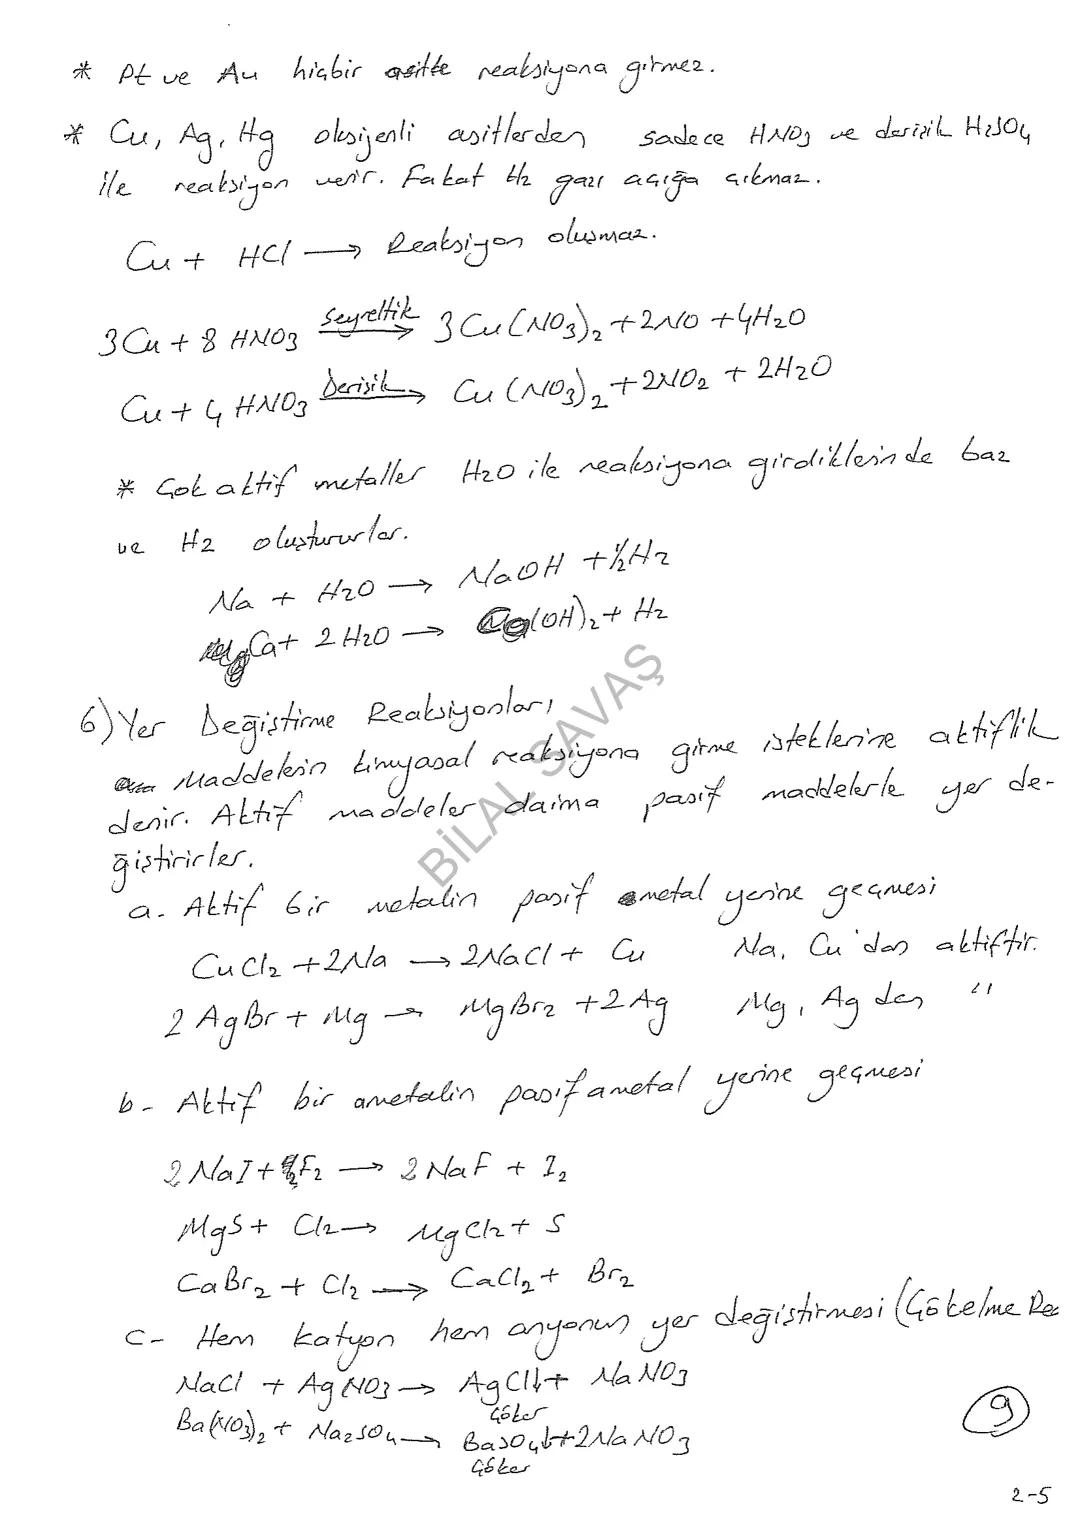 * Pt ve Au hiçbir asitle reaksiyona girmez.
* Cu, Ag, Hg oksijenli asitlerden sadece HNO3 ve derişik H2SO4
ile reaksiyon verir. Fakat H2 gazı açığa çıkmaz.
Cu + HCl → Reaksiyon oluşmaz.
3Cu + 8 HNO3 seyreltik → 3Cu(NO3)2 + 2NO + 4H2O
Cu + 4 HNO3 Derişik → Cu(NO3)2 + 2NO2 + 2H2O
* Çok aktif metaller H2O ile reaksiyona girdiklerinde baz
ve H2 oluştururlar.
Na + H2O → NaOH + 1/2H2
Ca + 2H2O → (OH)2 + H2
6) Yer Değiştirme Reaksiyonları
Maddelerin kimyasal reaksiyona girme isteklerine aktiflik
denir. Aktif maddeler daima pasif maddelerle yer de-
ğiştirirler.
a- Aktif bir metalin pasif metal yerine geçmesi
CuCl2 + 2Na → 2NaCl + Cu Na, Cu'dan aktiftir.
2 AgBr + Mg → MgBr2 + 2Ag Mg, Ag den "
b- Aktif bir ametalin pasif ametal yerine geçmesi
2 NaI + F2 → 2 NaF + I2
MgS + Cl2 → MgCl2 + S
CaBr2 + Cl2 → CaCl2 + Br2
c- Hem katyon hem anyonun yer değiştirmesi (Çökelme Re
NaCl + AgNO3 → AgCl↓ + NaNO3
Çöker
Ba(NO3)2 + Na2SO4 → BaSO4↓ + 2NaNO3
Çöker
9
2-5
BİLAL SAVAŞ